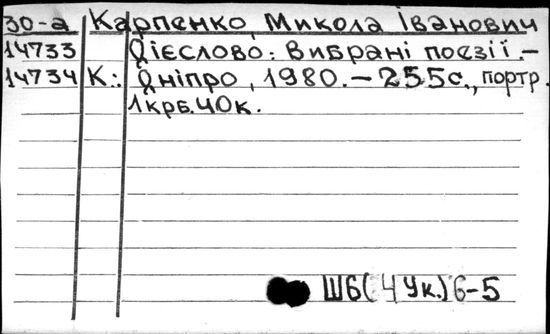 30-а Карпенко, Микола Іванович
14733 Дієслово: Вибрані поезії.–
14734 К.: Дніпро, 1980.–255с., портр.
1крб.40к.
Ш6(4Ук.)6-5